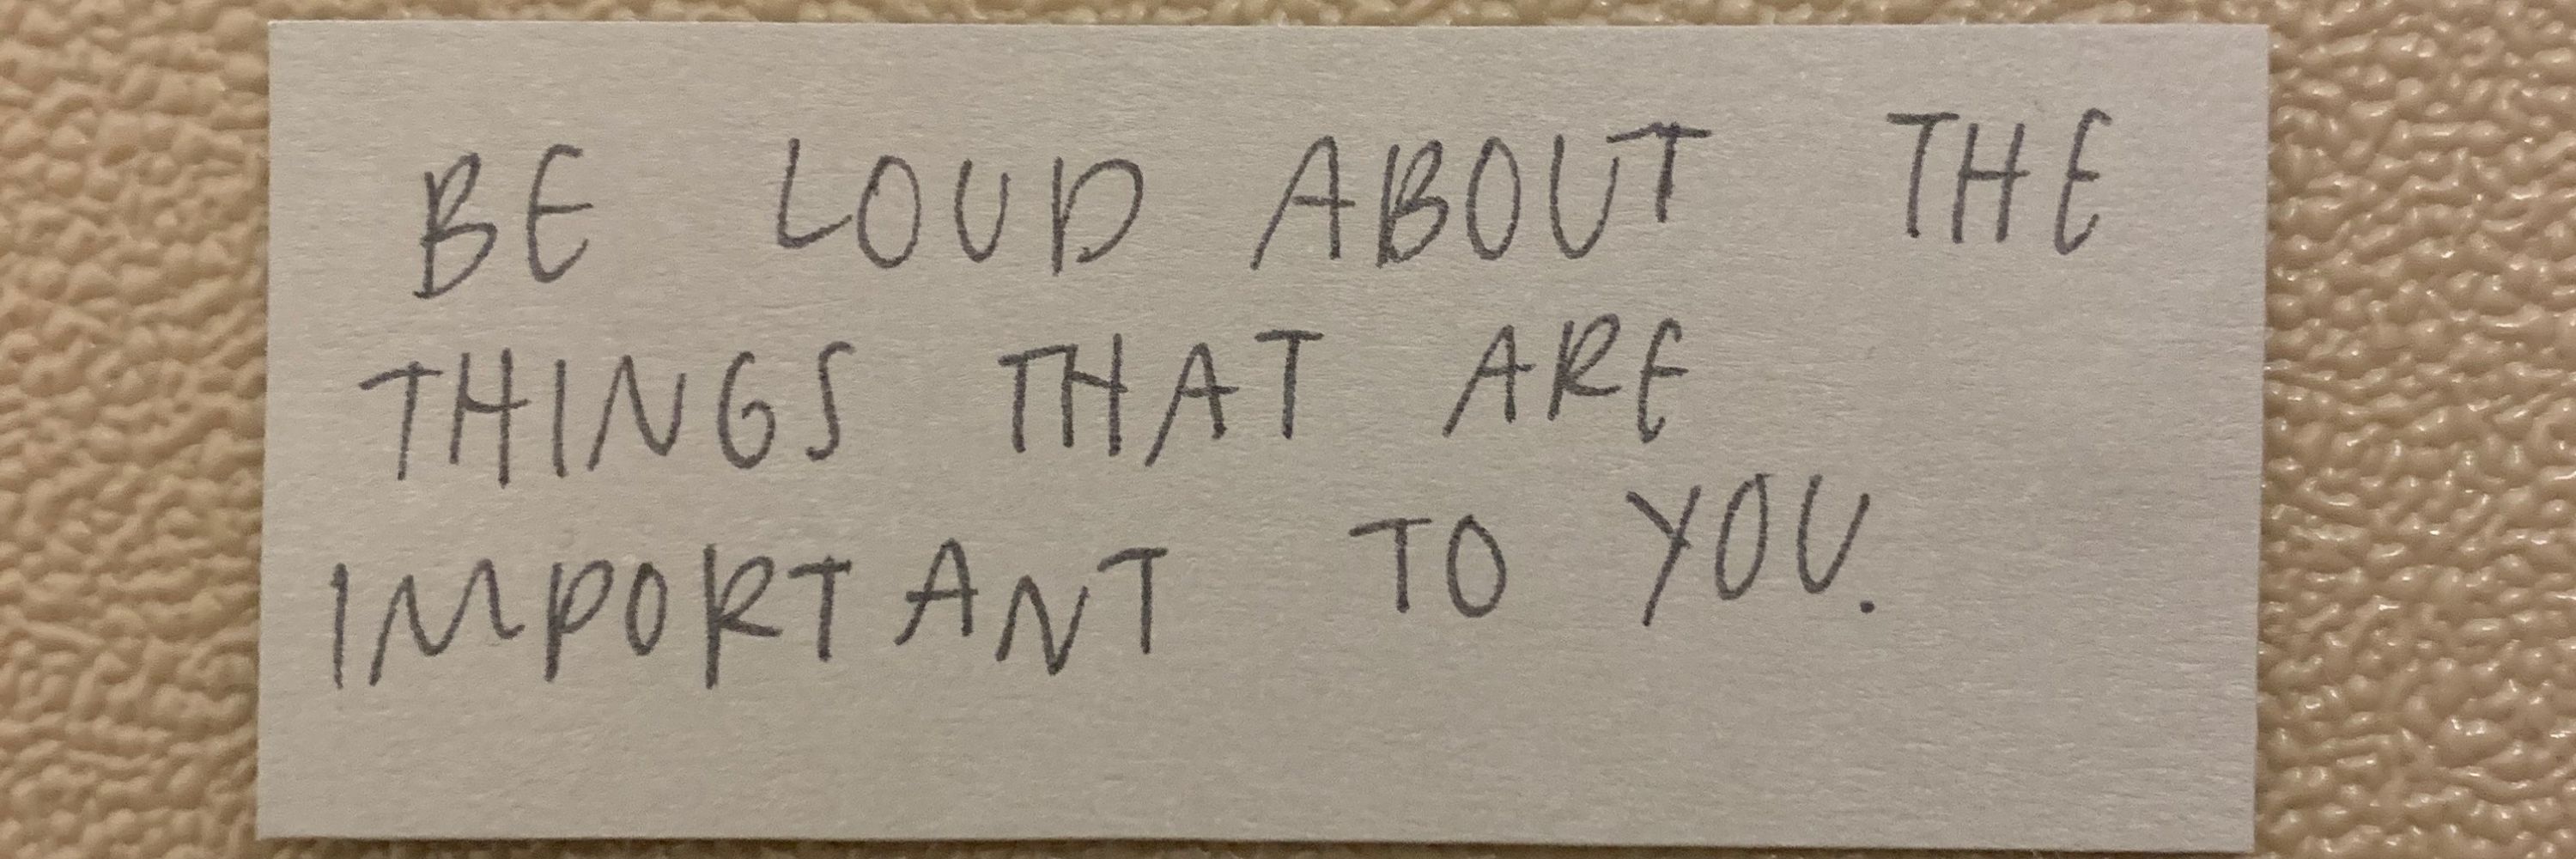 BE LOUD ABOUT THE
THINGS THAT ARE
IMPORTANT TO YOU.